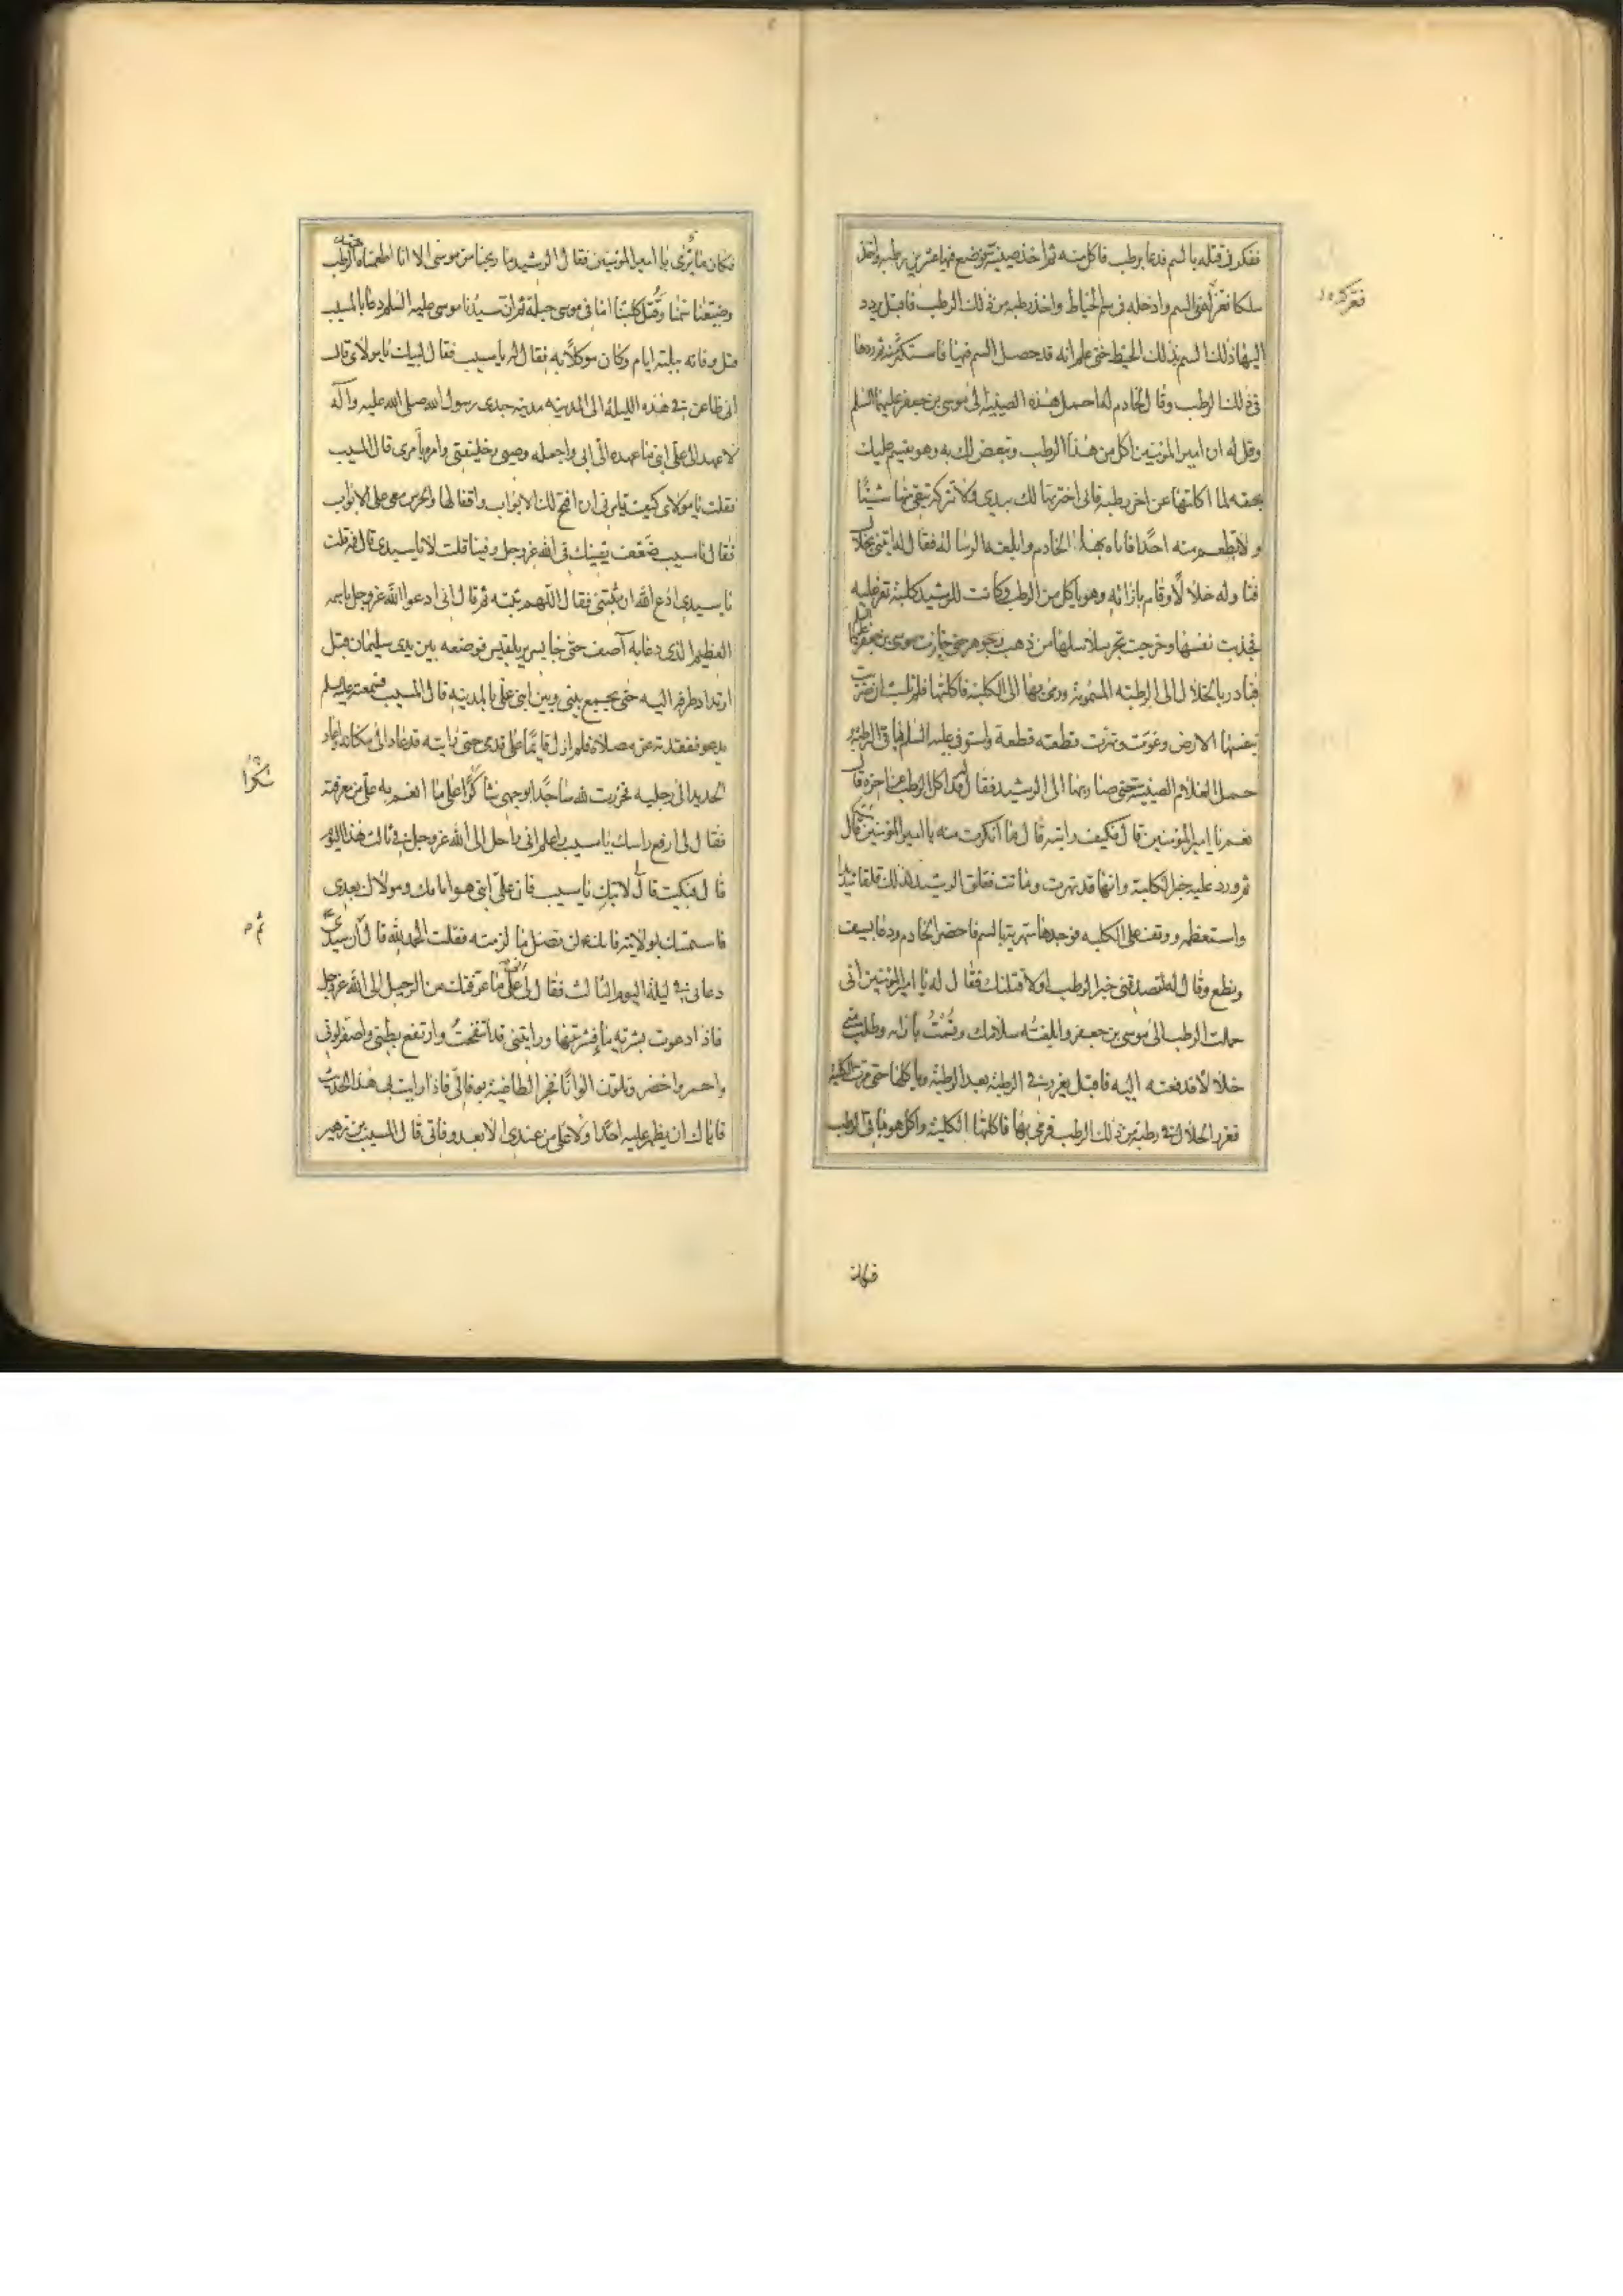 ففكر فى قتله بالسم فدعا برطب فاكل منه ثم اخذ صينية فوضع فيها عشرين رطبة واخذ
سلكا فعركه فى السم وادخله فى سم الخياط واخذ رطبة من ذلك الرطب فاقبل يردد
اليها ذلك السم بذلك الخيط حتى علم انه قد حصل السم فيها فاستكثر منه ثم ردها
فى ذلك الرطب وقال لخادم له احمل هذه الصينية الى موسى بن جعفر عليهما السلم
وقل له ان امير المؤمنين اكل من هذا الرطب وتنغص لك به وهو يقسم عليك
بحقه لما اكلتها عن اخر رطبة فانى اخترتها لك بيدى ولا تتركه يبقى منها شيئا
ولا يطعم منه احدا فاتاه بهذا الخادم وابلغه الرسالة فقال له ايتنى بخلال
فناوله خلالا وقام بازائه وهو ياكل من الرطب وكانت للرشيد كلبة تعز عليه
فجذبت نفسها وخرجت تجر سلاسلها من ذهب وجوهر حتى حاذت موسى بن جعفر عليهما السلم
فبادر بالخلال الى الرطبة المسمومة ورمى بها الى الكلبة فاكلتها فلم تلبث ان ضربت
بنفسها الارض وعوت وتهرت قطعة قطعة واستوفى عليه السلم باقى الرطب و
حمل الغلام الصينية حتى صار بها الى الرشيد فقال له قد اكل الرطب عن اخره قال
نعم يا امير المؤمنين قال فكيف رايته قال ما انكرت منه شيئا يا امير المؤمنين قال
ثم ورد عليه خبر الكلبة وانها قد تهرت وماتت فقلق الرشيد لذلك قلقا شديدا
واستعظمه ووقف على الكلبه فوجدها متهرية بالسم فاحضر الخادم ودعا بسيف
ونطع وقال له لتصدقنى خبر الرطب او لاقتلنك فقال له يا امير المؤمنين انى
حملت الرطب الى موسى بن جعفر وابلغته سلامك وقمت بازائه وطلب منى
خلالا فدفعته اليه فاقبل يغرز فى الرطبة بعد الرطبة وياكلها حتى مرت الكلبة
فغرز الخلال فى رطبة من ذلك الرطب فرمى بها فاكلتها الكلبة واكل هو باقى الرطب
فعركه
فكان
فكان ما ترى يا امير المؤمنين فقال الرشيد ما ربحنا من موسى الا انا اطعمناه جيد الرطب
وضيعنا سمنا وقتل كلبتنا ما فى موسى حيلة ثم ان سيدنا موسى عليه السلم دعا بالمسيب
قبل وفاته بثلثة ايام وكان موكلا به فقال له يا مسيب فقال لبيك يا مولاى قال
انى ظاعن فى هذه الليلة الى المدينه مدينه جدى رسول الله صلى الله عليه وآله
لاعهد الى على ابنى ما عهده الى ابى واجعله وصيى وخليفتى وامره بامرى قال المسيب
فقلت يا مولاى كيف تامرنى ان افتح لك الابواب واقفالها والحرس معى على الابواب
فقال يا مسيب ضعف يقينك فى الله عز وجل وفينا قلت لا يا سيدى قال فمه قلت
يا سيدى ادع الله ان يثبتنى فقال اللهم ثبته ثم قال انى ادعوا الله عز وجل باسمه
العظيم الذى دعا به آصف حتى جا بسرير بلقيس فوضعه بين يدى سليمان قبل
ارتداد طرفه اليه حتى يجمع بينى وبين ابنى على بالمدينه قال المسيب فسمعته عليه السلم
يدعو ففقدته عن مصلاه فلم ازل قايما على قدمى حتى رايته قد عاد الى مكانه واعاد
الحديد الى رجليه فخررت لله ساجدا لوجهى شاكرا على ما انعم به على من معرفته
فقال لى ارفع راسك يا مسيب واعلم انى راحل الى الله عز وجل فى ثالث هذا اليوم
قال فبكيت قال لا تبك يا مسيب فان على ابنى هو امامك ومولاك بعدى
فاستمسك بولايته فانك لن تضل ما لزمته فقلت الحمد لله قال ان سيدى
دعانى فى ليلة اليوم الثالث فقال لى انى على ما عرفتك من الرحيل الى الله عز وجل
فاذا دعوت بشربة ماء فشربتها ورايتنى قد انتفخت وارتفع بطنى واصفر لونى
واحمر واخضر وتلون الوانا فخبر الطاغية بوفاتى فاذا رايت بى هذا الحدث
فاياك ان يظهر عليه احدا ولا على من عندى الا بعد وفاتى قال المسيب بن زهير
شكرا
ثم